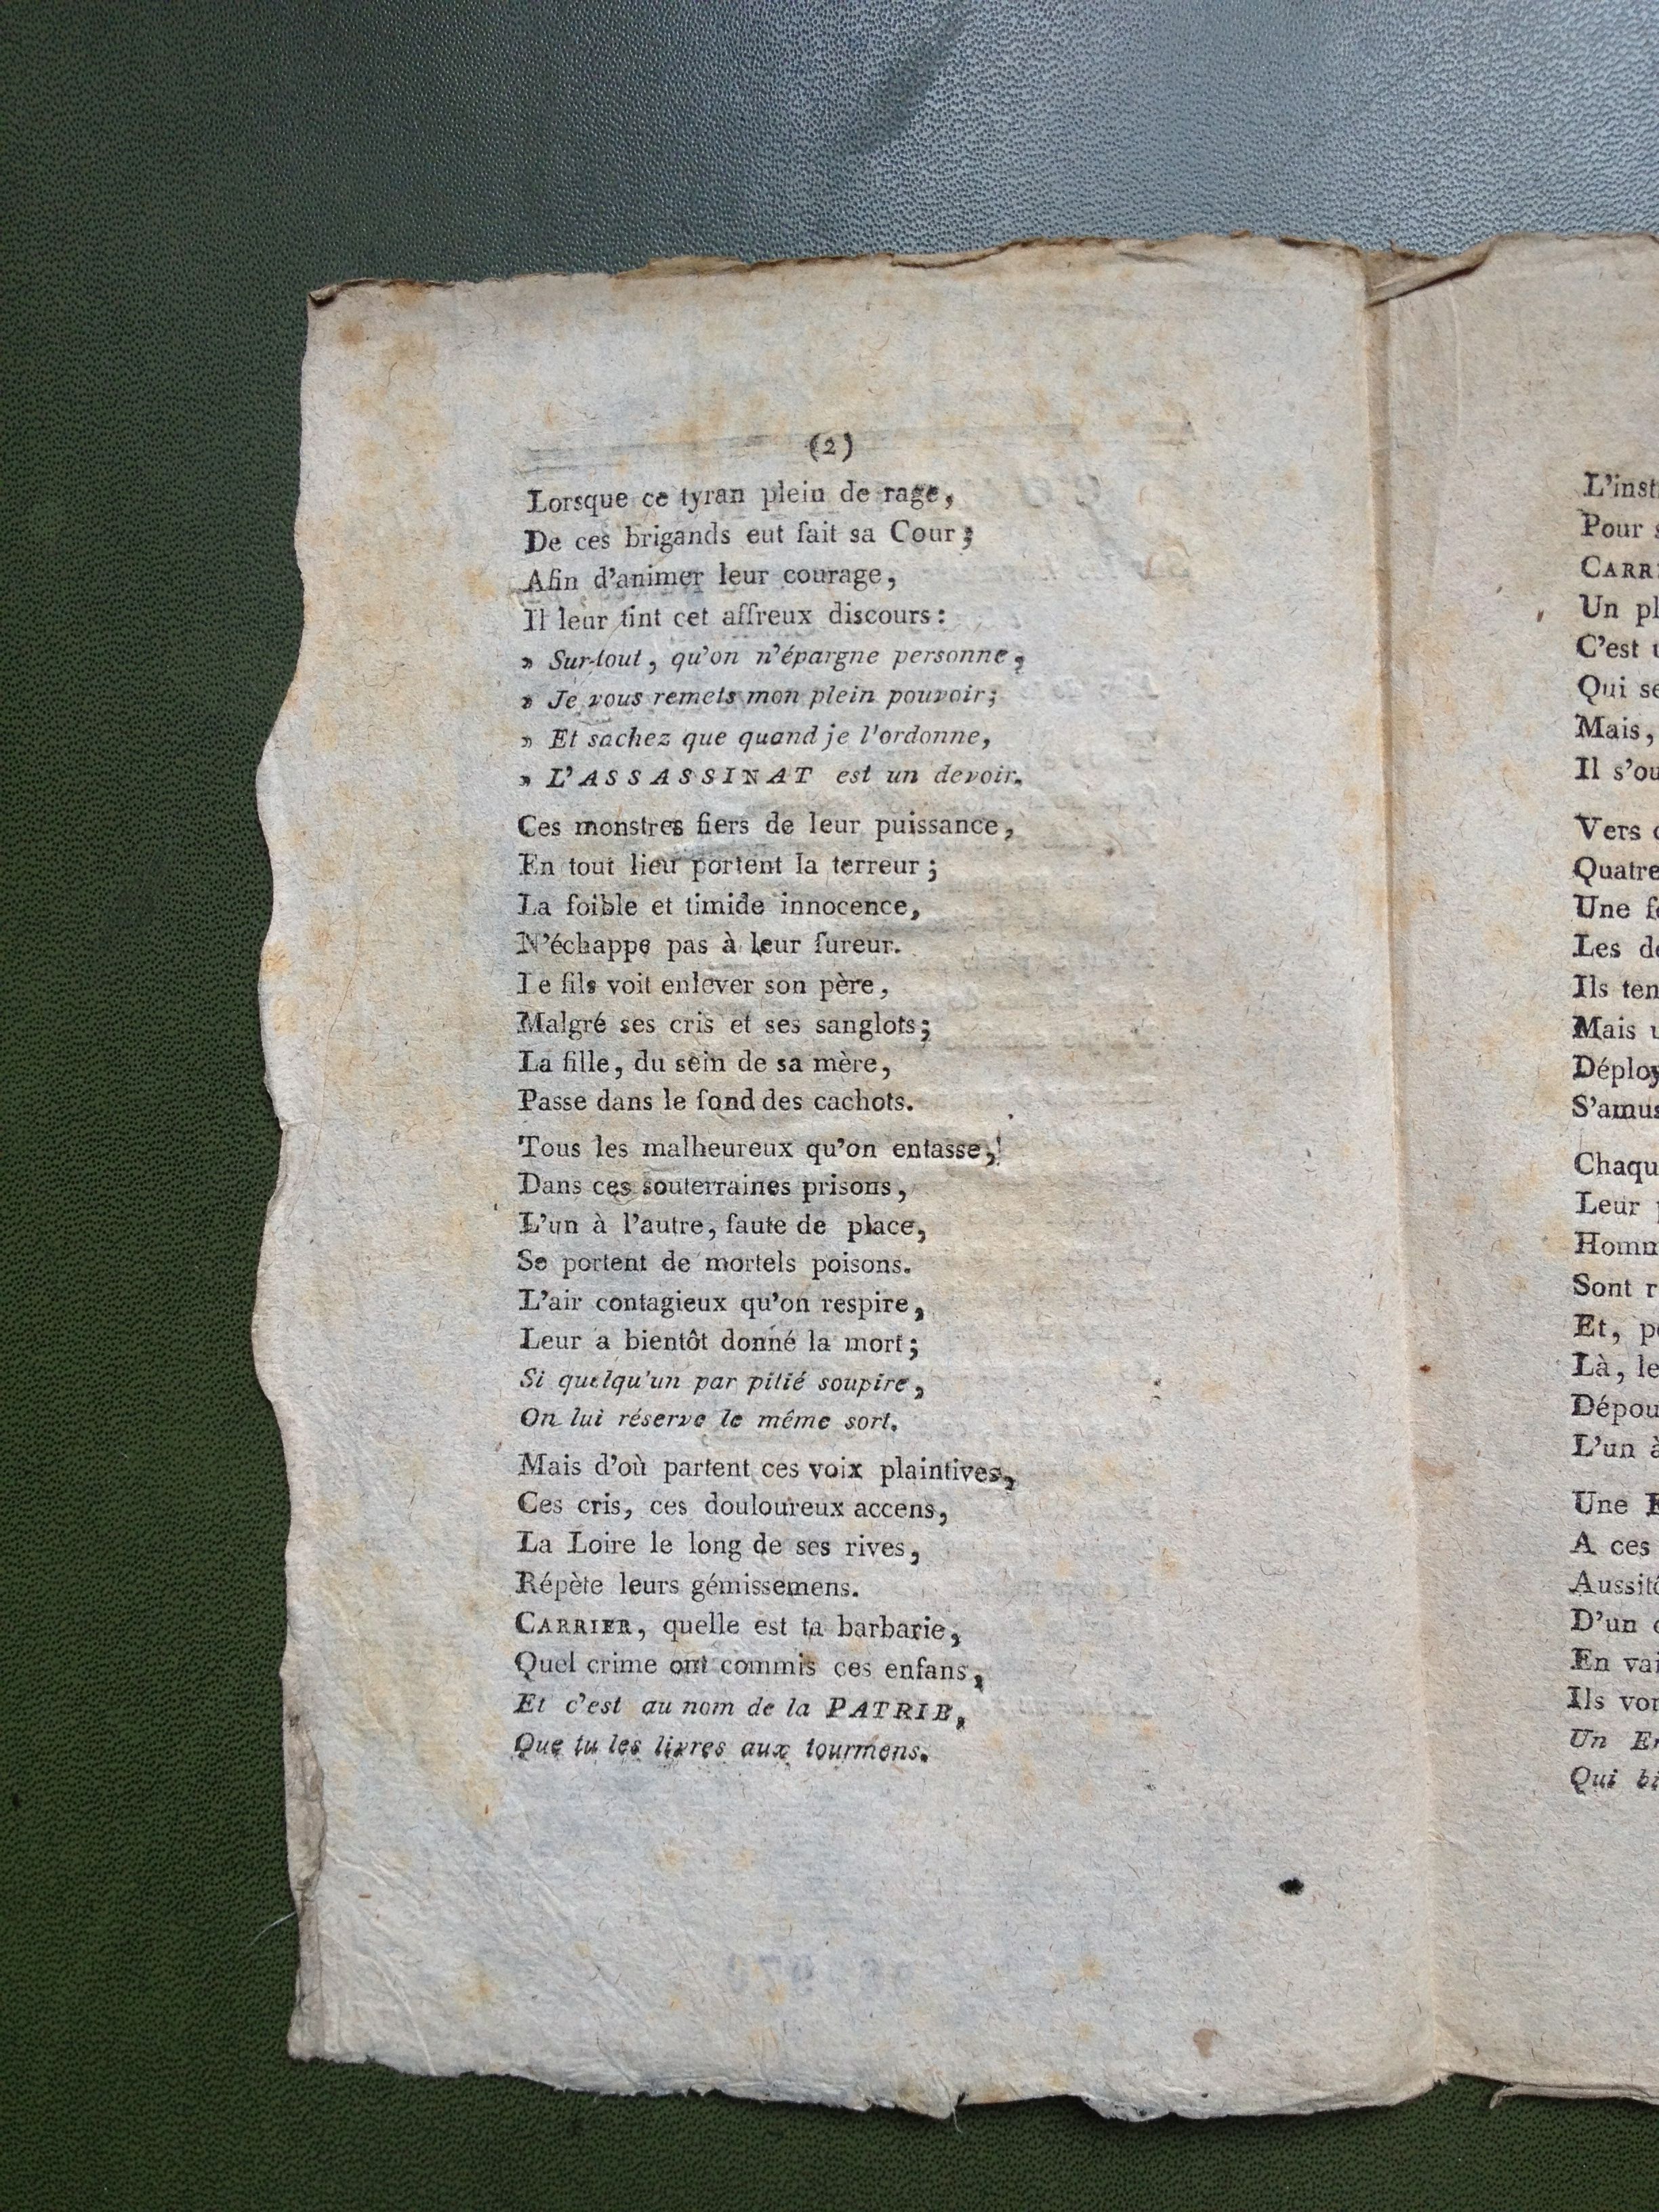 (2)
Lorsque ce tyran plein de rage,
De ces brigands eut fait sa Cour;
Afin d'animer leur courage,
Il leur tint cet affreux discours:
» Sur-tout, qu'on n'épargne personne,
» Je vous remets mon plein pouvoir;
» Et sachez que quand je l'ordonne,
» L'ASSASSINAT est un devoir.
Ces monstres fiers de leur puissance,
En tout lieu portent la terreur;
La foible et timide innocence,
N'échappe pas à leur fureur.
Le fils voit enlever son père,
Malgré ses cris et ses sanglots;
La fille, du sein de sa mère,
Passe dans le fond des cachots.
Tous les malheureux qu'on entasse,
Dans ces souterraines prisons,
L'un à l'autre, faute de place,
Se portent de mortels poisons.
L'air contagieux qu'on respire,
Leur a bientôt donné la mort;
Si quelqu'un par pitié soupire,
On lui réserve le même sort.
Mais d'où partent ces voix plaintives,
Ces cris, ces douloureux accens,
La Loire le long de ses rives,
Répète leurs gémissemens.
CARRIER, quelle est ta barbarie,
Quel crime ont commis ces enfans,
Et c'est au nom de la PATRIE,
Que tu les livres aux tourmens.
L'inst
Pour s
CARRI
Un pl
C'est u
Qui se
Mais,
Il s'ou
Vers
Quatre
Une fe
Les de
Ils ten
Mais u
Déploy
S'amus
Chaqu
Leur
Homm
Sont r
Et, po
Là, le
Dépou
L'un à
Une
A ces
Aussitô
D'un
En vai
Ils von
Un En
Qui bi